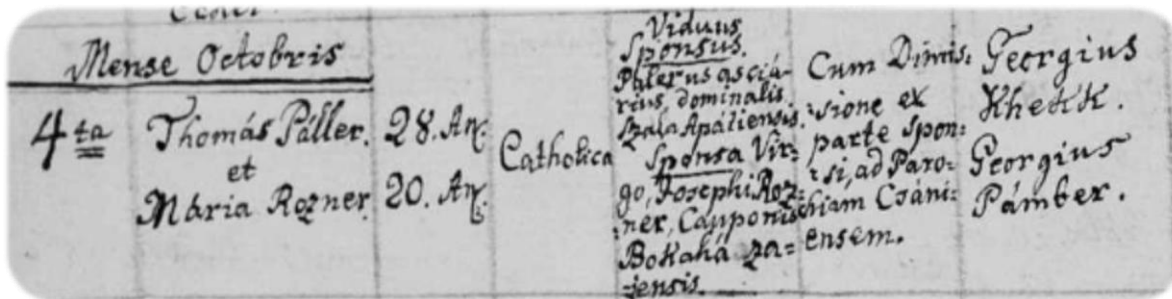 Mense Octobris
4ta
Thomás Páller.
et
Mária Rozner.
28. An.
20. An.
Catholica
Viduus
Sponsus.
Palerus asciá-
rius, dominalis
Szala Apáliensis.
Sponsa Vir-
go, Josephi Roz-
ner, Cauponis
Bokaházza=
jensis.
Cum Dimis:
:sione ex
parte Spon:
:si, ad Paro-
chiam Csáni:
ensem.
Georgius
Khekk.
Georgius
Pámber.